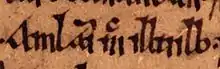 Amlaim mc illuilb